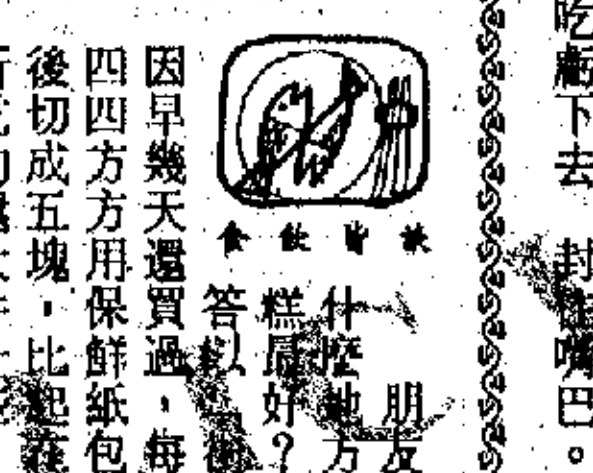 吃虧下去 封 嘴巴。
談皆飲食
朋友
什麼地方
糕最好？
答以
因早幾天還買過，每
四四方方用保鮮紙包
後切成五塊，比起在